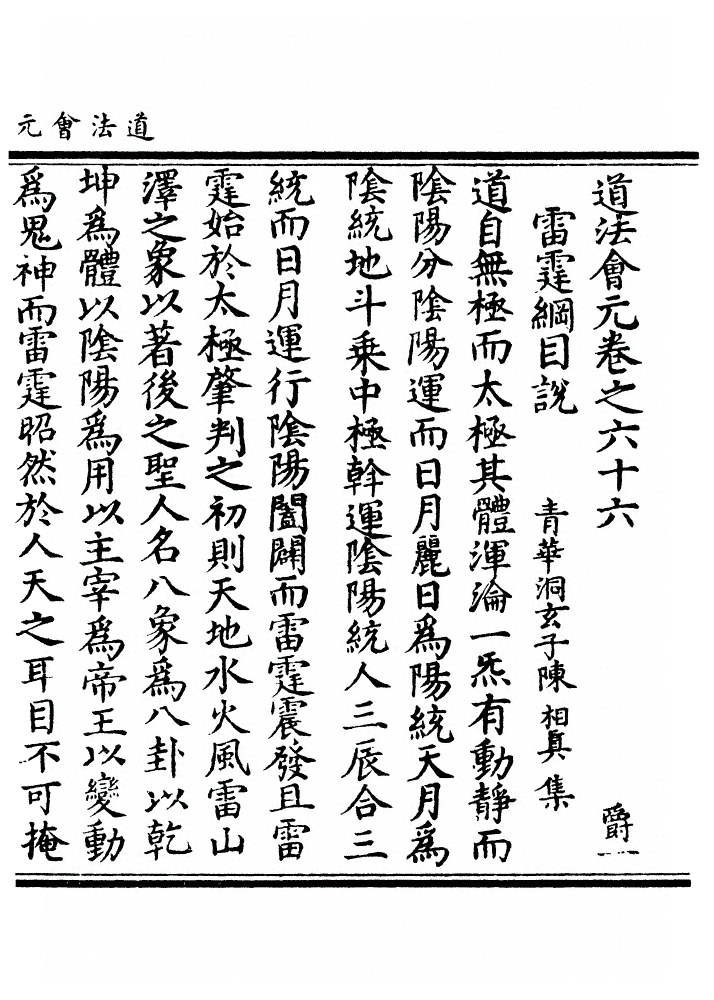 道法會元
道法會元卷之六十六 爵一
雷霆綱目說 青華洞玄子陳相真集
道自無極而太極其體渾淪一炁有動靜而
陰陽分陰陽運而日月麗日為陽統天月為
陰統地斗乘中極斡運陰陽統人三辰合三
統而日月運行陰陽闔闢而雷霆震發且雷
霆始於太極肇判之初則天地水火風雷山
澤之象以著後之聖人名八象為八卦以乾
坤為體以陰陽為用以主宰為帝王以變動
為鬼神而雷霆昭然於人天之耳目不可掩